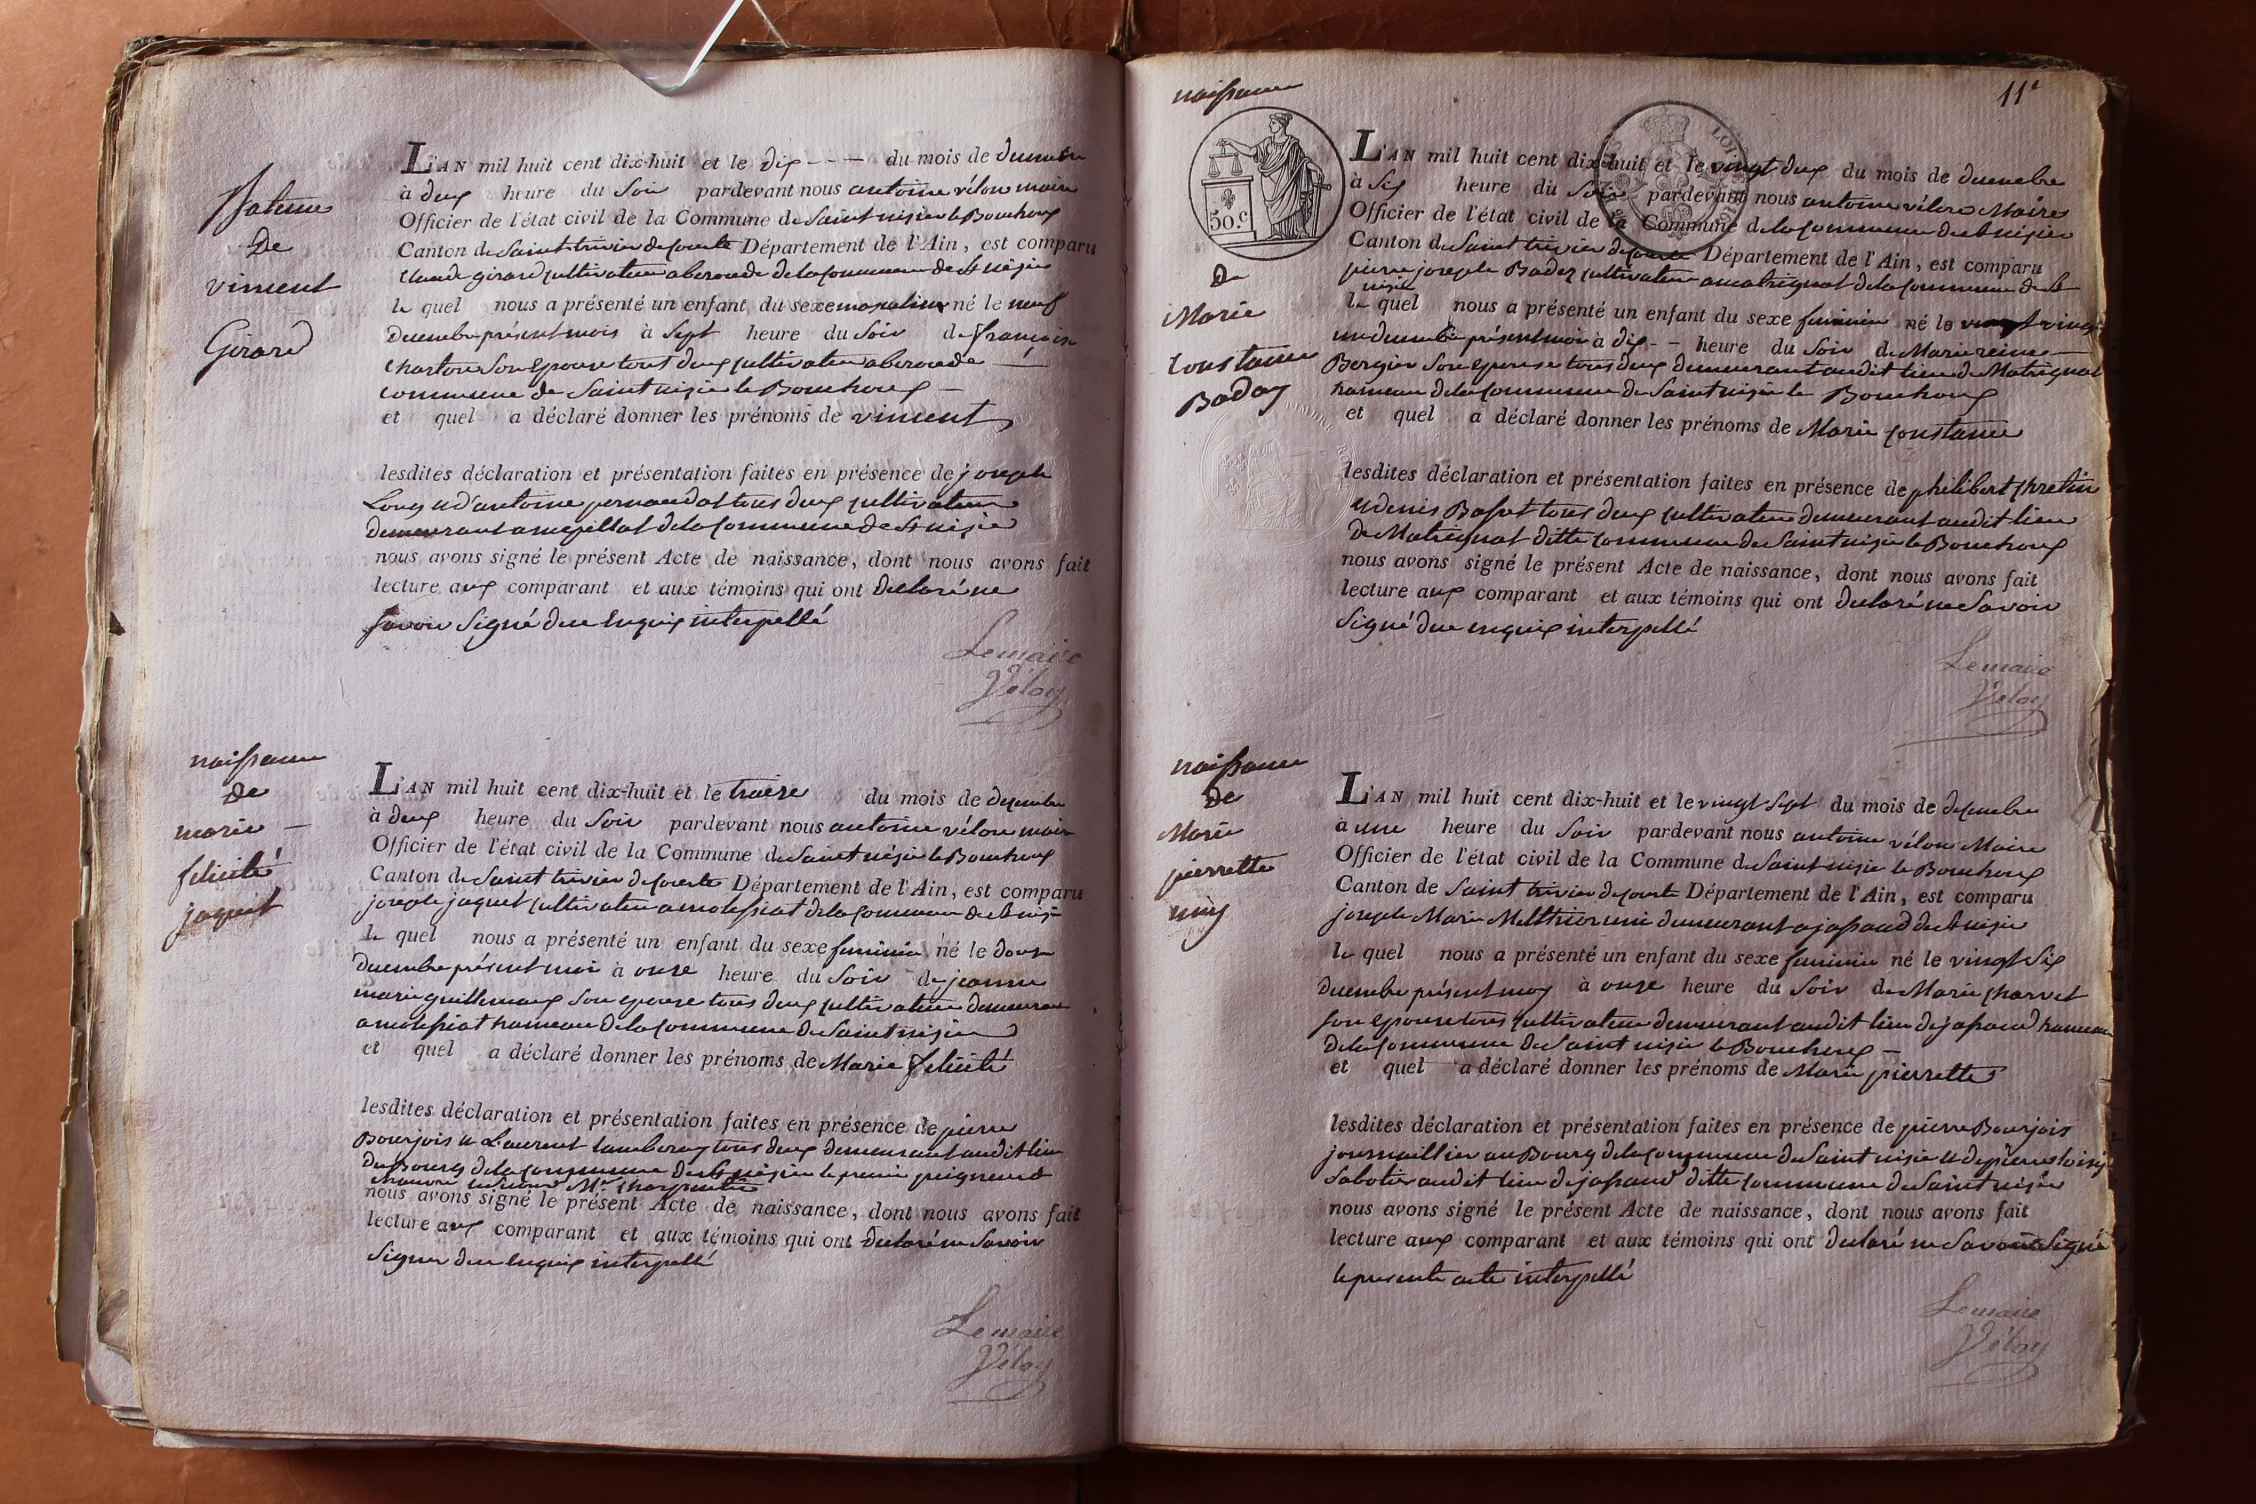 de
vincent
Girard
L'AN mil huit cent dix-huit et le dix - - - du mois de decembre
à deux heure du Soir pardevant nous antoine vélon maire
Officier de l'état civil de la Commune de Saint nizier le Bouchoux
Canton de Saint trivier de courte Département de l'Ain, est comparu
claude girard cultivateur a de la commune de St nizier
le quel nous a présenté un enfant du sexe masculin né le neuf
decembre présent mois à Sept heure du Soir de françoise
charton Son epouse tout deux cultivateur
commune de Saint nizier le Bouchoux
et quel a déclaré donner les prénoms de vincent
lesdites déclaration et présentation faites en présence de joseph
Long et d'antoine tous deux cultivateur
demeurant a de la commune de St nizier
nous avons signé le présent Acte de naissance, dont nous avons fait
lecture aux comparant et aux témoins qui ont declaré ne
savoir Signé de ce enquis interpellé
Lemaire
Vélon
naissance
de
marie
felicité
jaquet
L'AN mil huit cent dix-huit et le traize du mois de decembre
à deux heure du Soir pardevant nous antoine vélon maire
Officier de l'état civil de la Commune de Saint nizier le Bouchoux
Canton de Saint trivier de courte Département de l'Ain, est comparu
joseph jaquet cultivateur a molissiat de la commune de St nizier
le quel nous a présenté un enfant du sexe feminin né le douze
decembre présent moi à onze heure du Soir de jeanne
marie guillemaux Son epouse tous deux cultivateur demeurant
a molissiat hameau de la commune de Saint nizier
et quel a déclaré donner les prénoms de Marie felicité
lesdites déclaration et présentation faites en présence de pierre
Bourjois et Laurent tous deux demeurant audit lieu
du Bourg de la commune de St nizier le premier peigneur de
chanvre le second charpentier
nous avons signé le présent Acte de naissance, dont nous avons fait
lecture aux comparant et aux témoins qui ont declaré ne Savoir
Signer de ce enquis interpellé
Lemaire
Vélon
naissance
11e
50.c
de
Marie
constance
Baday
L'AN mil huit cent dix-huit et le vingt deux du mois de decembre
à Six heure du Soir pardevant nous antoine vélon Maire
Officier de l'état civil de la Commune de la commune de St nizier
Canton de Saint trivier de courte Département de l'Ain, est comparu
pierre joseph cultivateur a matrignat de la commune de St
nizier
le quel nous a présenté un enfant du sexe feminin né le vingt
un decembre présent moi à dix - - heure du Soir de Marie reine
Bergier Son epouse tous deux demeurant audit lieu de Matrignat
hameau de la commune de Saint nizier le Bouchoux
et quel a déclaré donner les prénoms de Marie constance
lesdites déclaration et présentation faites en présence de philibert chretin
et denis Bafset tous deux cultivateur demeurant audit lieu
de Matrignat ditte commune de Saint nizier le Bouchoux
nous avons signé le présent Acte de naissance, dont nous avons fait
lecture aux comparant et aux témoins qui ont declaré ne Savoir
Signé de ce enquis interpellé
Lemaire
Vélon
naissance
de
Marie
pierrette
L'AN mil huit cent dix-huit et le vingt Sept du mois de decembre
à une heure du Soir pardevant nous antoine vélon Maire
Officier de l'état civil de la Commune de Saint nizier le Bouchoux
Canton de Saint trivier de courte Département de l'Ain, est comparu
joseph Marie demeurant a de St nizier
le quel nous a présenté un enfant du sexe feminin né le vingt Six
decembre présent moy à onze heure du Soir de Marie charvet
Son epouse tous cultivateur demeurant audit lieu de hameau
de la commune de Saint nizier le Bouchoux
et quel a déclaré donner les prénoms de Marie pierrette
lesdites déclaration et présentation faites en présence de pierre Bourjois
journaillier au Bourg de la commune de Saint nizier et de pierre
Sabotier audit lieu de ditte commune de Saint nizier
nous avons signé le présent Acte de naissance, dont nous avons fait
lecture aux comparant et aux témoins qui ont declaré ne Savoir Signé
le presente acte interpellé
Lemaire
Vélon